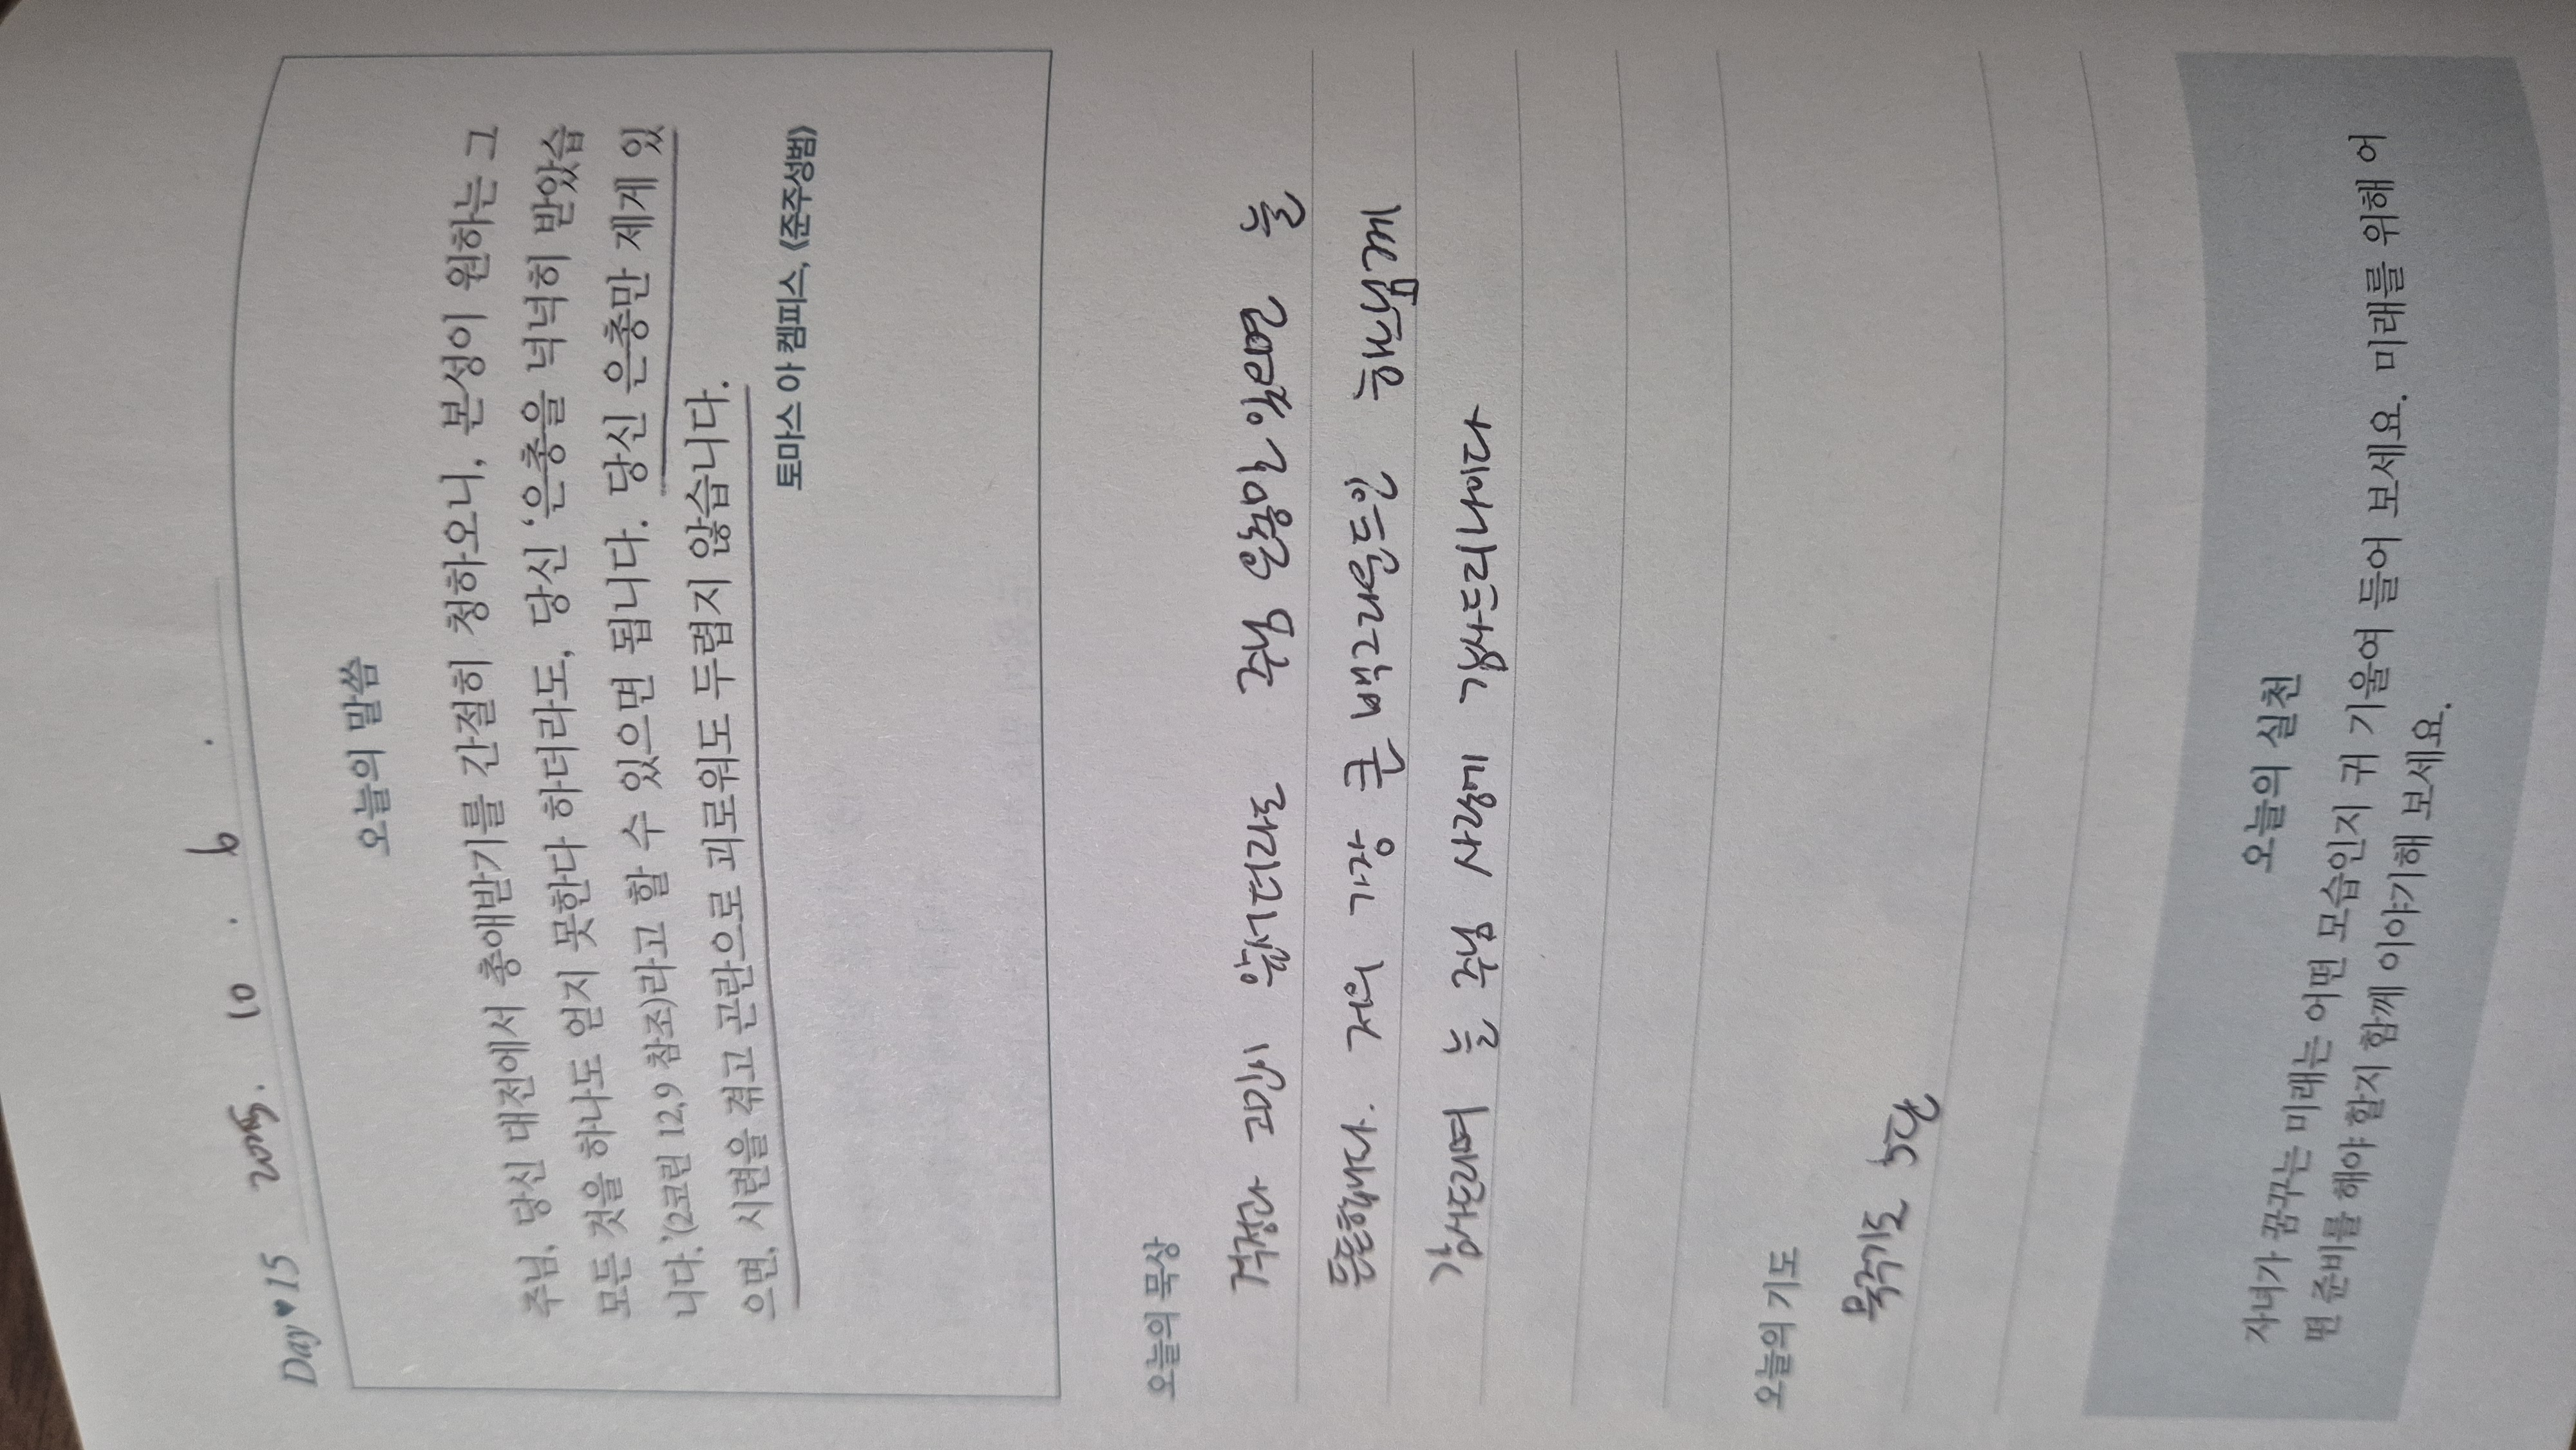 Day♥15 2025. 10 . 6 .
오늘의 말씀
주님, 당신 대전에서 총애받기를 간절히 청하오니, 본성이 원하는 그
모든 것을 하나도 얻지 못한다 하더라도, 당신 ‘은총을 넉넉히 받았습
니다.’(2코린 12,9 참조)라고 할 수 있으면 됩니다. 당신 은총만 제게 있
으면, 시련을 겪고 곤란으로 괴로워도 두렵지 않습니다.
토마스 아 켐피스, 《준주성범》
오늘의 묵상
걱정과 고민이 많더라도 주님 은총만 있으면 늘
든든합니다. 저의 가장 큰 백그라운드인 하느님께
감사드리며 늘 주님 사랑에 감사드리나이다
오늘의 기도
묵주기도 5단
오늘의 실천
자녀가 꿈꾸는 미래는 어떤 모습인지 귀 기울여 들어 보세요. 미래를 위해 어
떤 준비를 해야 할지 함께 이야기해 보세요.